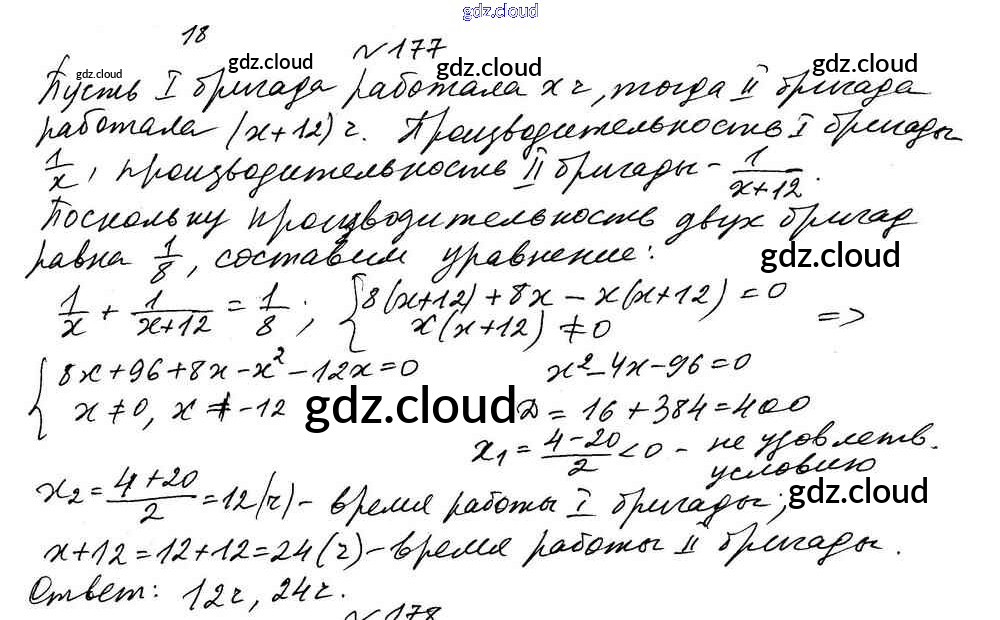 gdz.cloud
18
№177
gdz.cloud gdz.cloud gdz.cloud gdz.cloud
Пусть I бригада работала x ч, тогда II бригада
работала (x+12) ч. Производительность I бригады
1/x, производительность II бригады - 1/(x+12).
Поскольку производительность двух бригад
равна 1/8, составим уравнение:
gdz.cloud
1/x + 1/(x+12) = 1/8; { 8(x+12)+8x-x(x+12)=0
x(x+12)≠0 =>
{ 8x+96+8x-x²-12x=0 x²-4x-96=0
x≠0, x≠-12 gdz.cloud D=16+384=400
x₁=(4-20)/2<0 - не удовлетв.
условию
x₂=(4+20)/2=12(ч) - время работы I бригады;
gdz.cloud
x+12=12+12=24(ч)-время работы II бригады.
Ответ: 12ч, 24ч.
№178